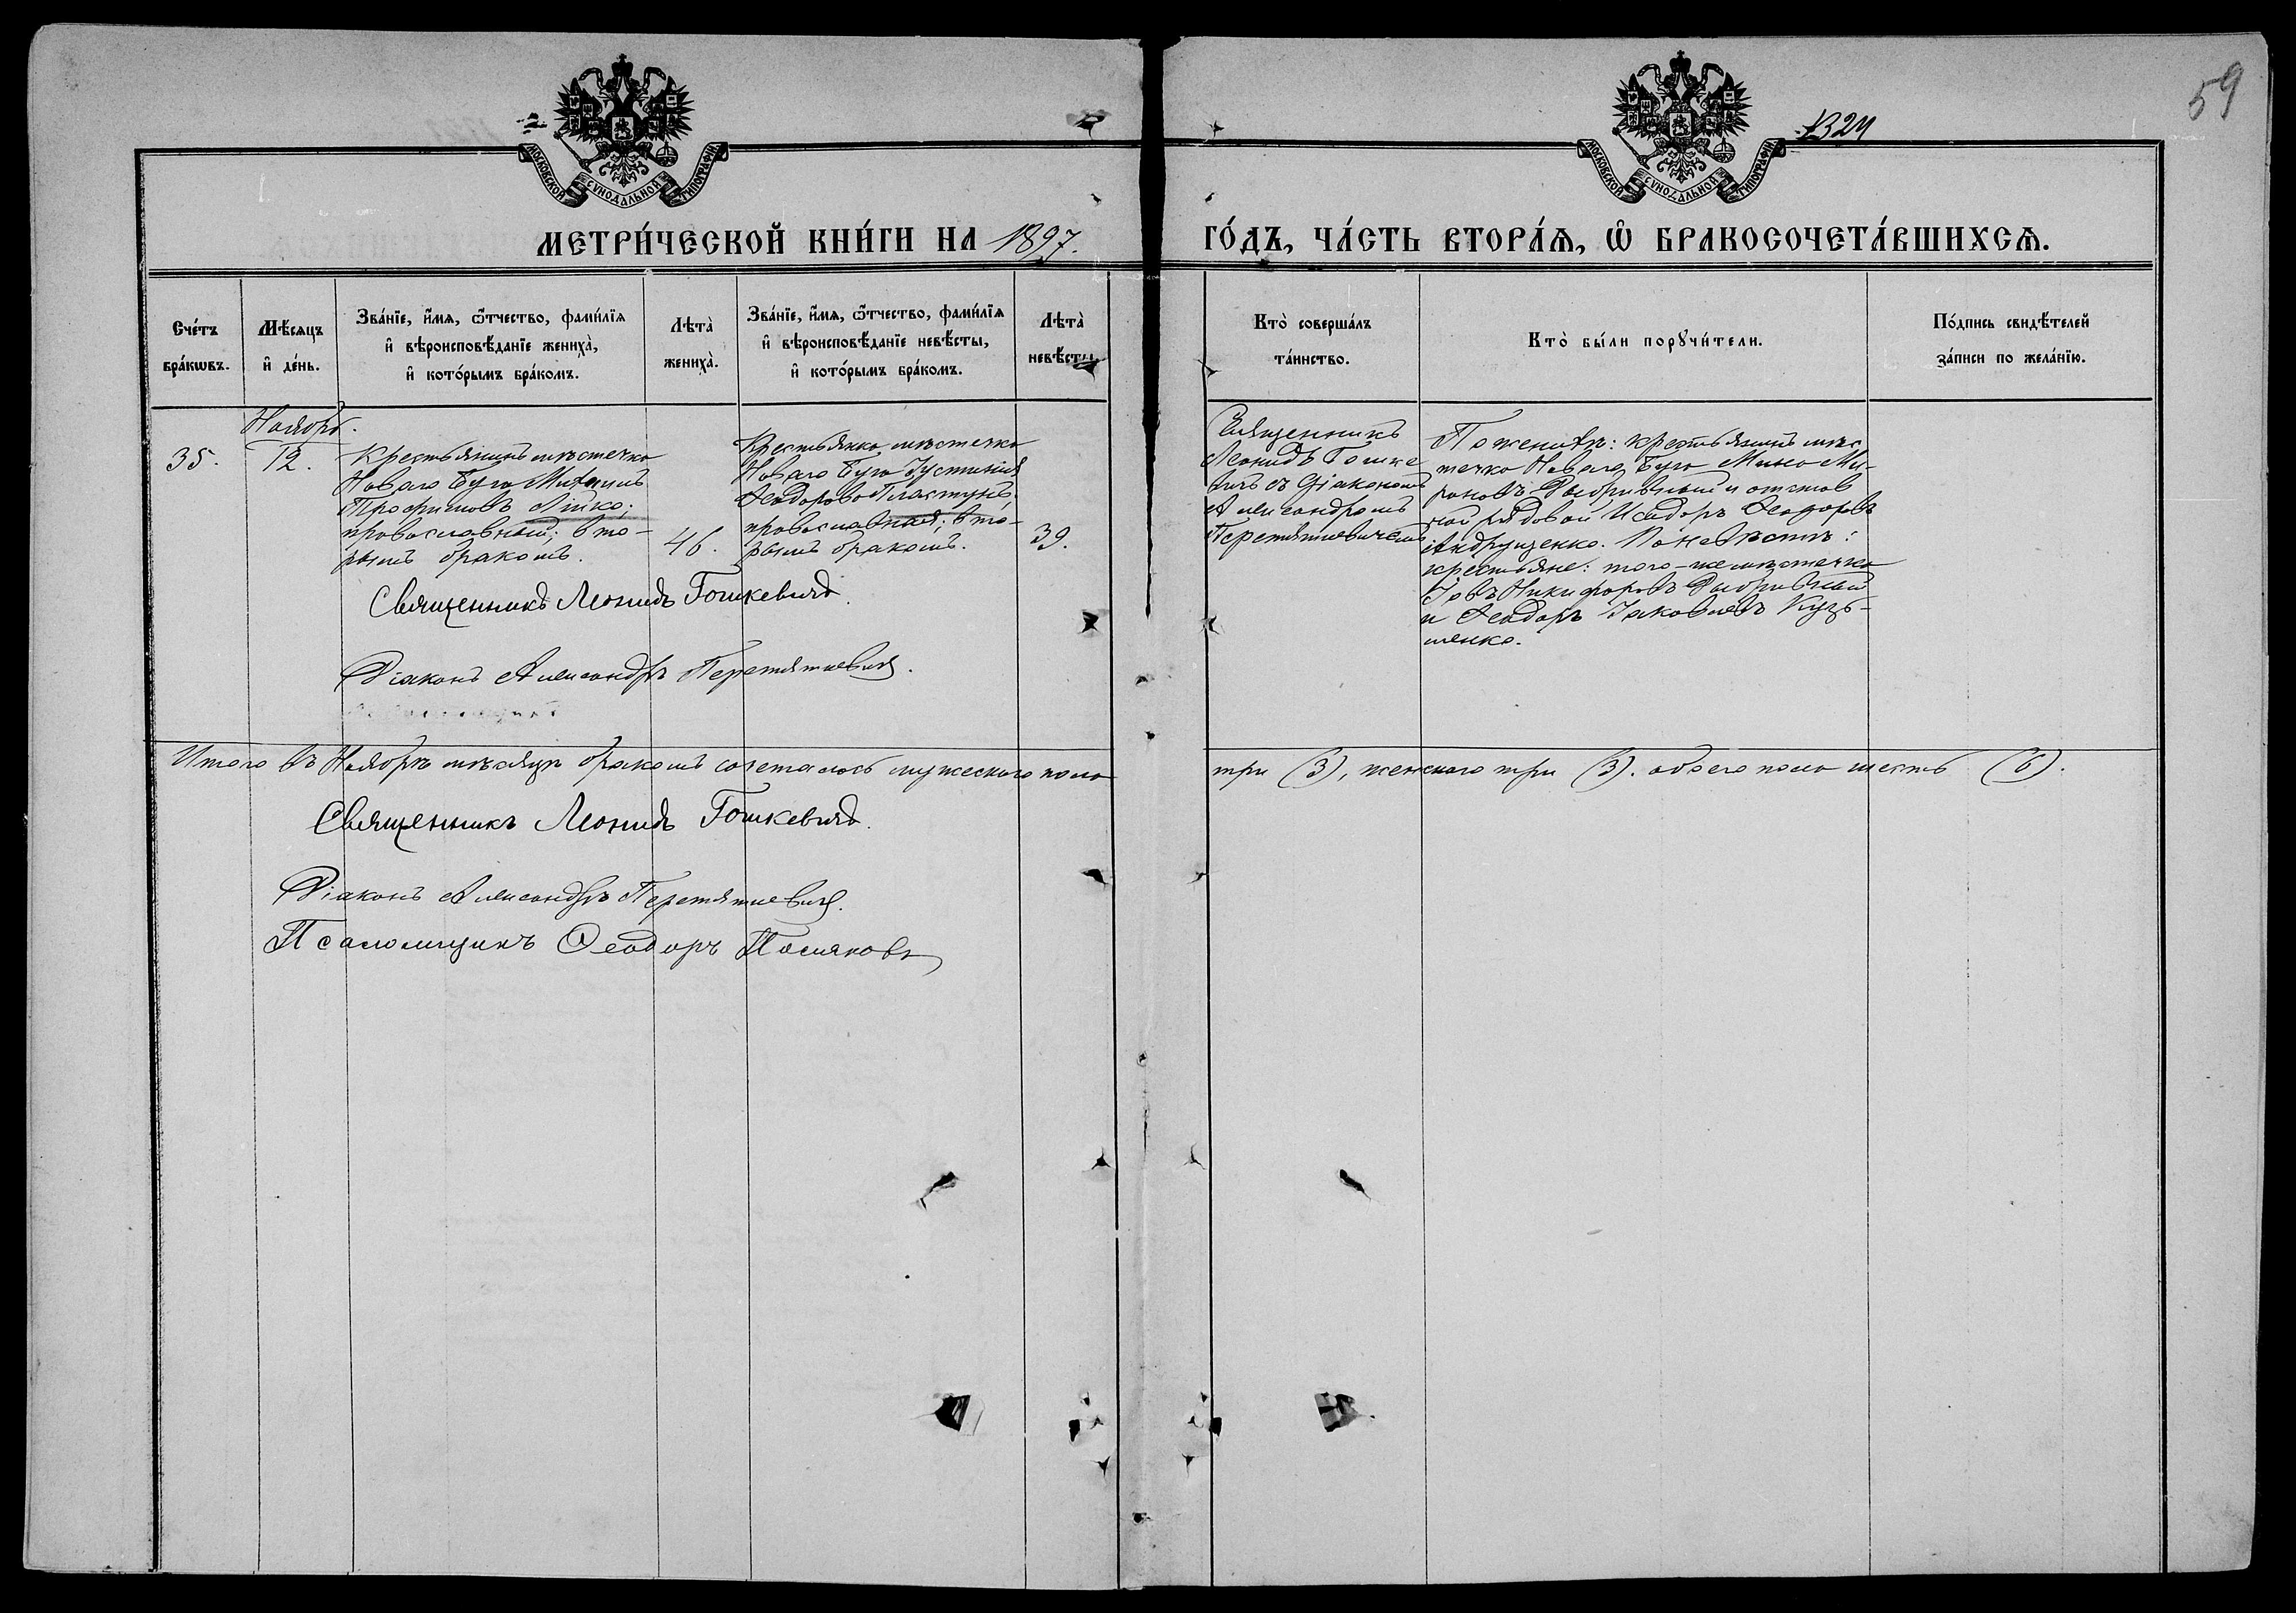 59
1324
МОСКОВСКОЙ СѴНОДАЛЬНОЙ ТИПОГРАФІИ
МОСКОВСКОЙ СѴНОДАЛЬНОЙ ТИПОГРАФІИ
МЕТРИ́ЧЕСКОЙ КНИ́ГИ НА 1897. ГО́ДЪ, ЧА́СТЬ ВТОРА́Ѧ, Ѡ҆ БРАКОСОЧЕТА́ВШИХСѦ.
Сче́тъ
бра́кѡвъ.
Мѣ́сѧцъ
и҆ де́нь.
Зва́нїе, и҆́мѧ, ѻ҆́тчество, фами́лїѧ
и҆ вѣроисповѣ́данїе жениха̀,
и҆ кото́рымъ бра́комъ.
Лѣта̀
жениха̀.
Зва́нїе, и҆́мѧ, ѻ҆́тчество, фами́лїѧ
и҆ вѣроисповѣ́данїе невѣ́сты,
и҆ кото́рымъ бра́комъ.
Лѣта̀
невѣ́сты.
Кто̀ соверша́лъ
та́инство.
Кто̀ бы́ли порꙋчи́тели.
По́дпись свидѣ́телей
за́писи по жела́нїю.
Ноябрь.
35.
12.
Крестьянинъ мѣстечка
Новаго Буга Михаилъ
Трофимовъ Лійко;
православный; вто-
рымъ бракомъ.
46.
Крестьянка мѣстечка
Новаго Буга Іустинія
Ѳеодорова Пластунъ,
православная; вто-
рымъ бракомъ.
39.
Священникъ
Леонидъ Гошке
вичъ съ діакономъ
Александромъ
Перетяткевичемъ
По женихѣ: крестьянинъ мѣс
течка Новаго Буга Мина Ми-
роновъ Дибривный и отстав
ной рядовой Исидоръ Ѳеодоровъ
Андрущенко. По невѣстѣ:
крестьяне: того-же мѣстечка
Іовъ Никифоровъ Дибривный
и Ѳеодоръ Іаковлевъ Кузь-
менко.
Священникъ Леонидъ Гошкевичъ.
Діаконъ Александръ Перетяткевичъ.
Итого въ Ноябрѣ мѣсяцѣ бракомъ сочеталось мужескаго пола три (3), женскаго три (3). обоего пола шесть (6).
Священникъ Леонидъ Гошкевичъ.
Діаконъ Александръ Перетяткевичъ.
Псаломщикъ Ѳеодоръ Посяковъ